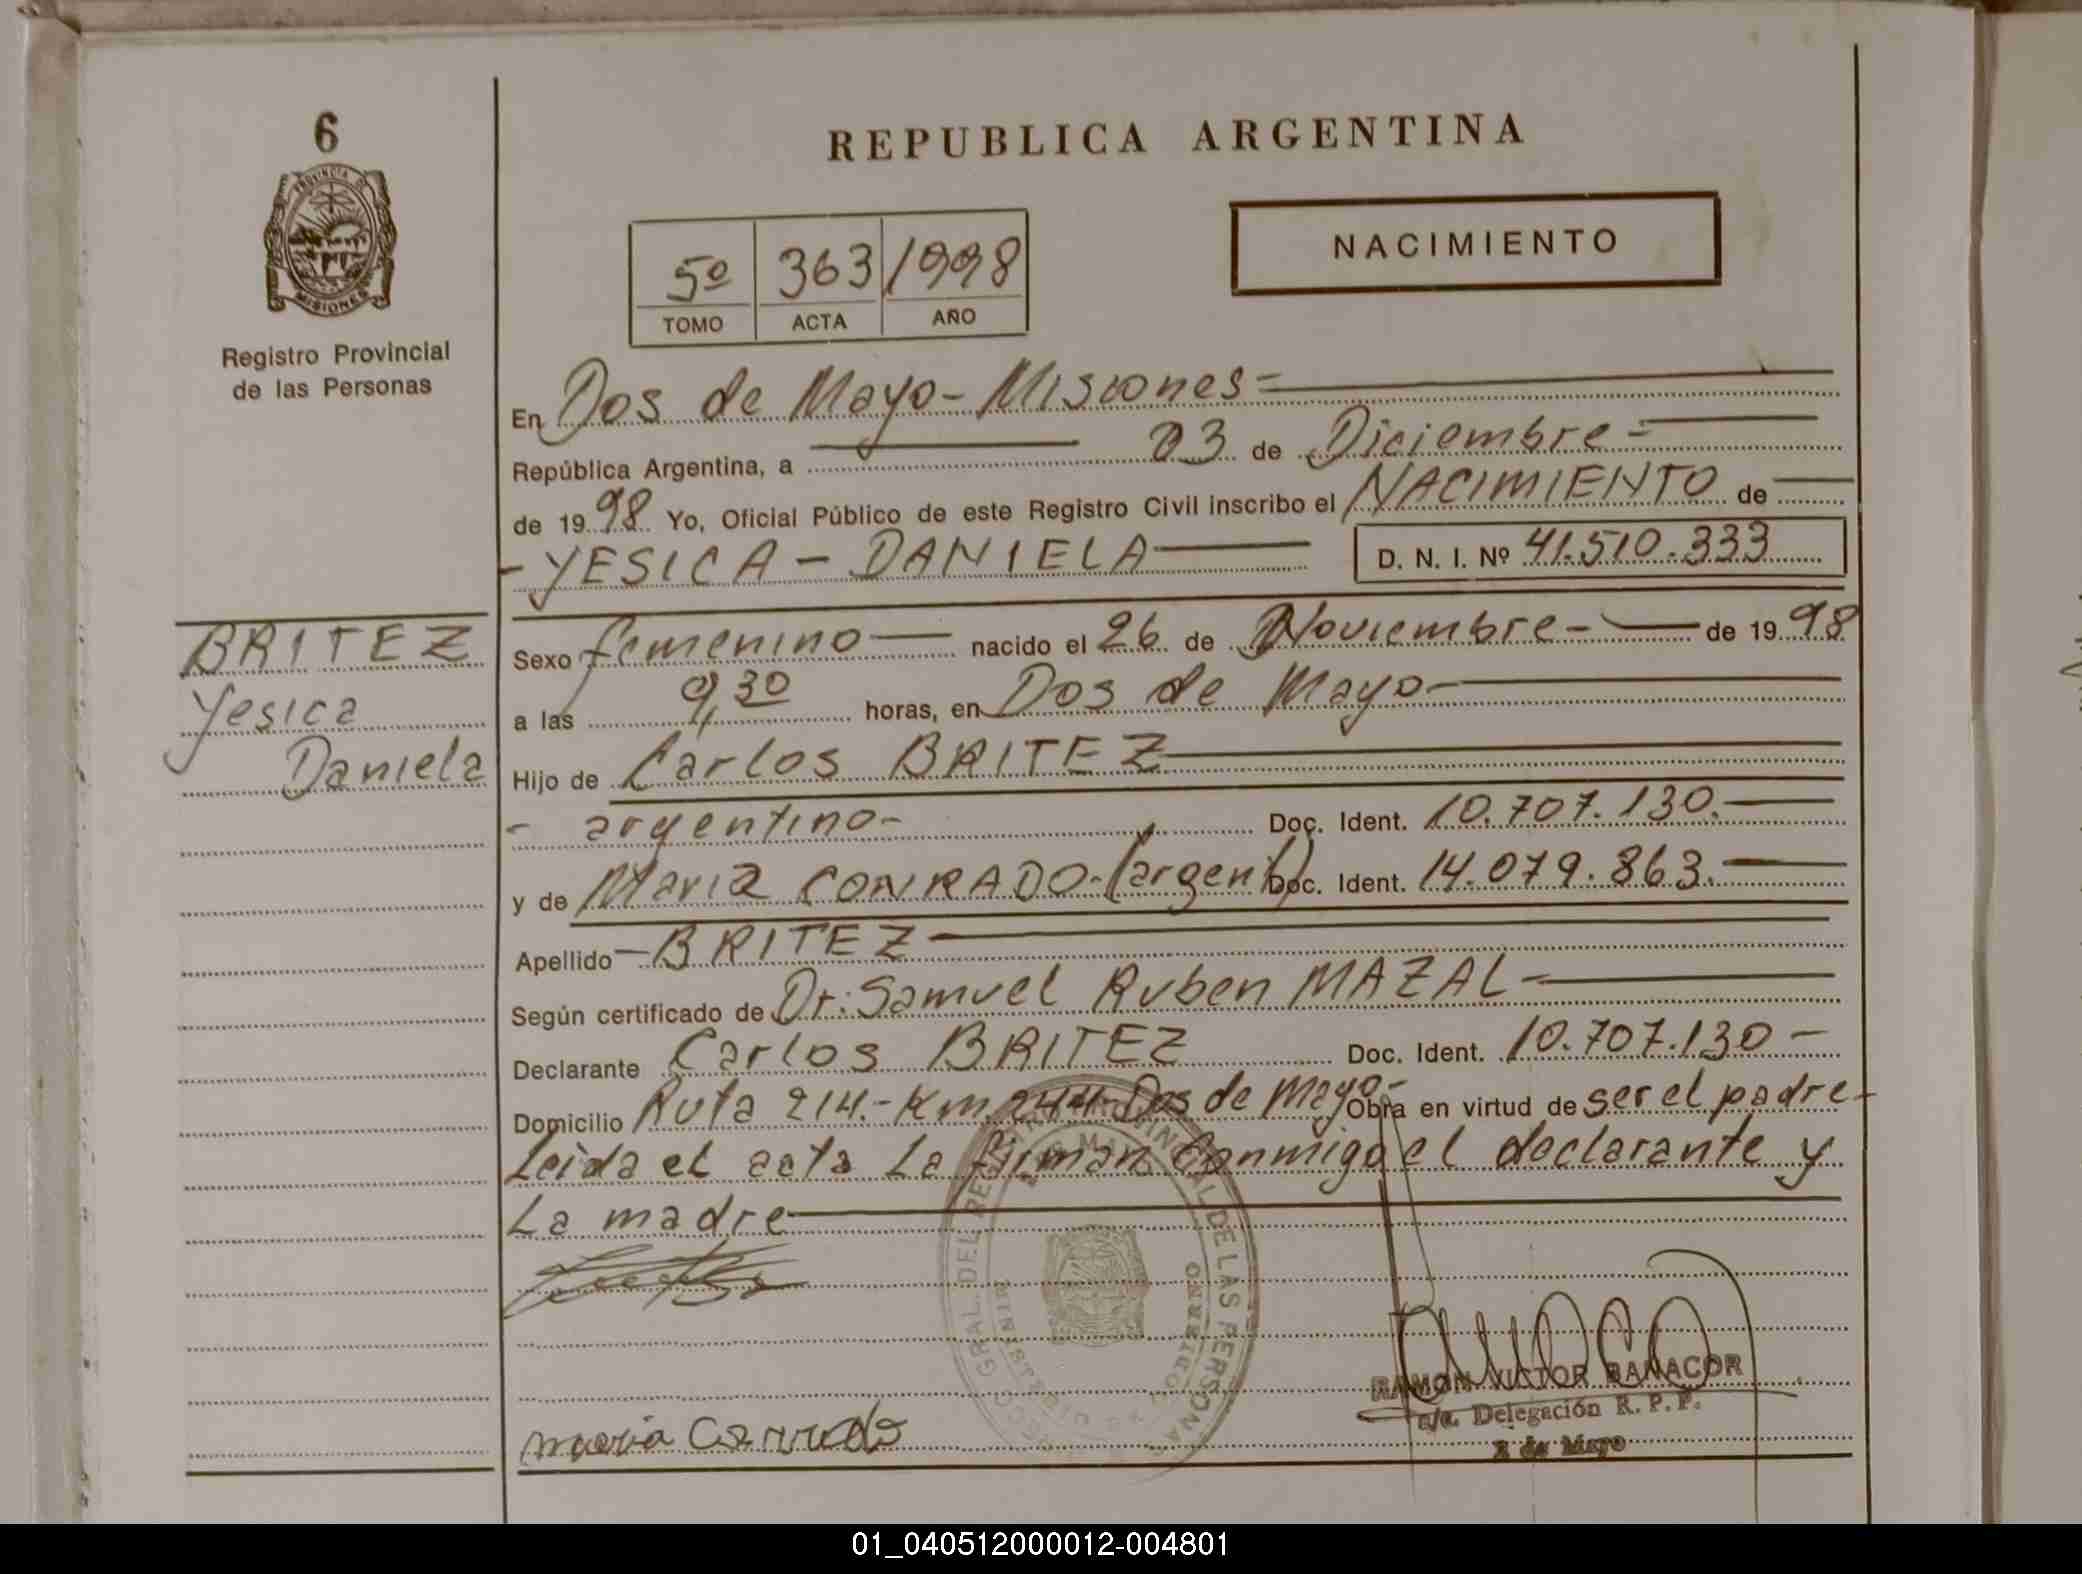 6
PROVINCIA DE
MISIONES
Registro Provincial
de las Personas
REPUBLICA ARGENTINA
NACIMIENTO
5º 363 1998
TOMO ACTA AÑO
En Dos de Mayo - Misiones =
República Argentina, a 03 de Diciembre =
de 1998 Yo, Oficial Público de este Registro Civil inscribo el NACIMIENTO de
- YESICA - DANIELA D. N. I. Nº 41.510.333
BRITEZ
Yesica
Daniela
Sexo femenino nacido el 26 de Noviembre - de 1998
a las 9,30 horas, en Dos de Mayo -
Hijo de Carlos BRITEZ
- argentino - Doc. Ident. 10.707.130.
y de Maria CONRADO - (argent) Doc. Ident. 14.079.863.
Apellido - BRITEZ
Según certificado de Dr: Samuel Ruben MAZAL -
Declarante Carlos BRITEZ Doc. Ident. 10.707.130 -
Domicilio Ruta 214.- Km. 244 - Dos de Mayo - Obra en virtud de ser el padre -
Leida el acta La firman Conmigo el declarante y
La madre
maria Conrado
RAMON VICTOR BANACOR
a/c. Delegación R. P. P.
2 de Mayo
01_040512000012-004801